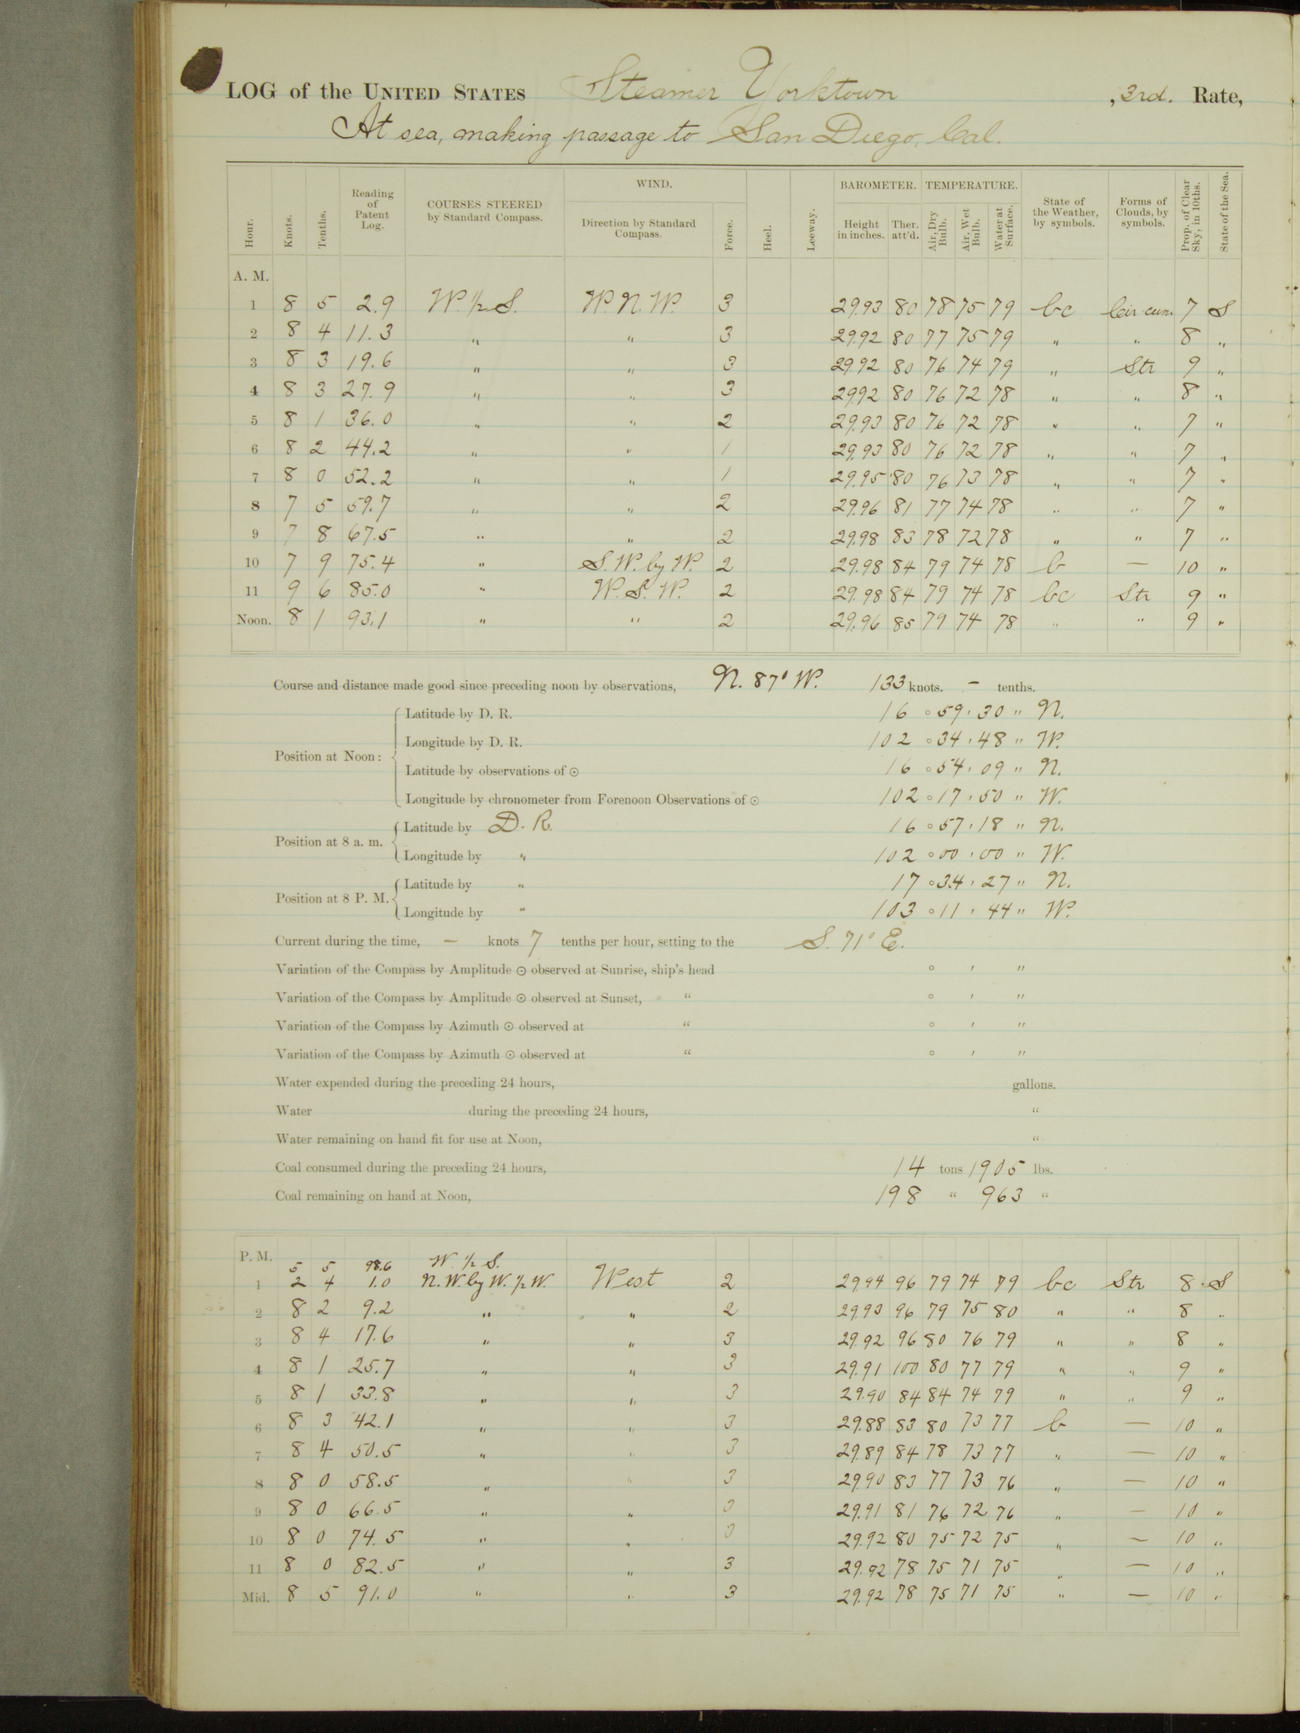 LOG of the UNITED STATES Steamer Yorktown, 3rd. Rate,
At sea, making passage to San Diego, Cal.
Hour. Knots. Tenths. Reading of Patent Log. COURSES STEERED by Standard Compass. WIND. Direction by Standard Compass. Force. Heel. Leeway. BAROMETER. Height in inches. Ther. att'd. TEMPERATURE. Air, Dry Bulb. Air, Wet Bulb. Water at Surface. State of the Weather, by symbols. Forms of Clouds, by symbols. Prop. of Clear Sky, in 10ths. State of the Sea.
A. M.
1 8 5 2.9 W. 1/2 S. W. N. W. 3 29.93 80 78 75 79 bc Cir cum. 7 S
2 8 4 11.3 " " 3 29.92 80 77 75 79 " " 8 "
3 8 3 19.6 " " 3 29.92 80 76 74 79 " Str 9 "
4 8 3 27.9 " " 3 29.92 80 76 72 78 " " 8 "
5 8 1 36.0 " " 2 29.93 80 76 72 78 " " 7 "
6 8 2 44.2 " " 1 29.93 80 76 72 78 " " 7 "
7 8 0 52.2 " " 1 29.95 80 76 73 78 " " 7 "
8 7 5 59.7 " " 2 29.96 81 77 74 78 " " 7 "
9 7 8 67.5 " " 2 29.98 83 78 72 78 " " 7 "
10 7 9 75.4 " S. W. by W. 2 29.98 84 79 74 78 b — 10 "
11 9 6 85.0 " W. S. W. 2 29.98 84 79 74 78 bc Str 9 "
Noon. 8 1 93.1 " " 2 29.96 85 79 74 78 " " 9 "
Course and distance made good since preceding noon by observations, N. 87° W. 133 knots. — tenths.
Position at Noon: Latitude by D. R. 16 ° 59 ' 30 " N.
Longitude by D. R. 102 ° 34 ' 48 " W.
Latitude by observations of ☉ 16 ° 54 ' 09 " N.
Longitude by chronometer from Forenoon Observations of ☉ 102 ° 17 ' 50 " W.
Position at 8 a. m. Latitude by D. R. 16 ° 57 ' 18 " N.
Longitude by " 102 ° 00 ' 00 " W.
Position at 8 P. M. Latitude by " 17 ° 34 ' 27 " N.
Longitude by " 103 ° 11 ' 44 " W.
Current during the time, — knots 7 tenths per hour, setting to the S. 71° E.
Variation of the Compass by Amplitude ☉ observed at Sunrise, ship's head ° ' "
Variation of the Compass by Amplitude ☉ observed at Sunset, " ° ' "
Variation of the Compass by Azimuth ☉ observed at " ° ' "
Variation of the Compass by Azimuth ☉ observed at " ° ' "
Water expended during the preceding 24 hours, gallons.
Water during the preceding 24 hours, "
Water remaining on hand fit for use at Noon, "
Coal consumed during the preceding 24 hours, 14 tons 1905 lbs.
Coal remaining on hand at Noon, 198 " 963 "
P. M.
5 5 98.6 W. 1/2 S.
1 2 4 1.0 N. W. by W. 1/2 W. West 2 29.94 96 79 74 79 bc Str 8 S
2 8 2 9.2 " " 2 29.93 96 79 75 80 " " 8 "
3 8 4 17.6 " " 3 29.92 96 80 76 79 " " 8 "
4 8 1 25.7 " " 3 29.91 100 80 77 79 " " 9 "
5 8 1 33.8 " " 3 29.90 84 84 74 79 " " 9 "
6 8 3 42.1 " " 3 29.88 83 80 73 77 b — 10 "
7 8 4 50.5 " " 3 29.89 84 78 73 77 " — 10 "
8 8 0 58.5 " " 3 29.90 83 77 73 76 " — 10 "
9 8 0 66.5 " " 3 29.91 81 76 72 76 " — 10 "
10 8 0 74.5 " " 3 29.92 80 75 72 75 " — 10 "
11 8 0 82.5 " " 3 29.92 78 75 71 75 " — 10 "
Mid. 8 5 91.0 " " 3 29.92 78 75 71 75 " — 10 "